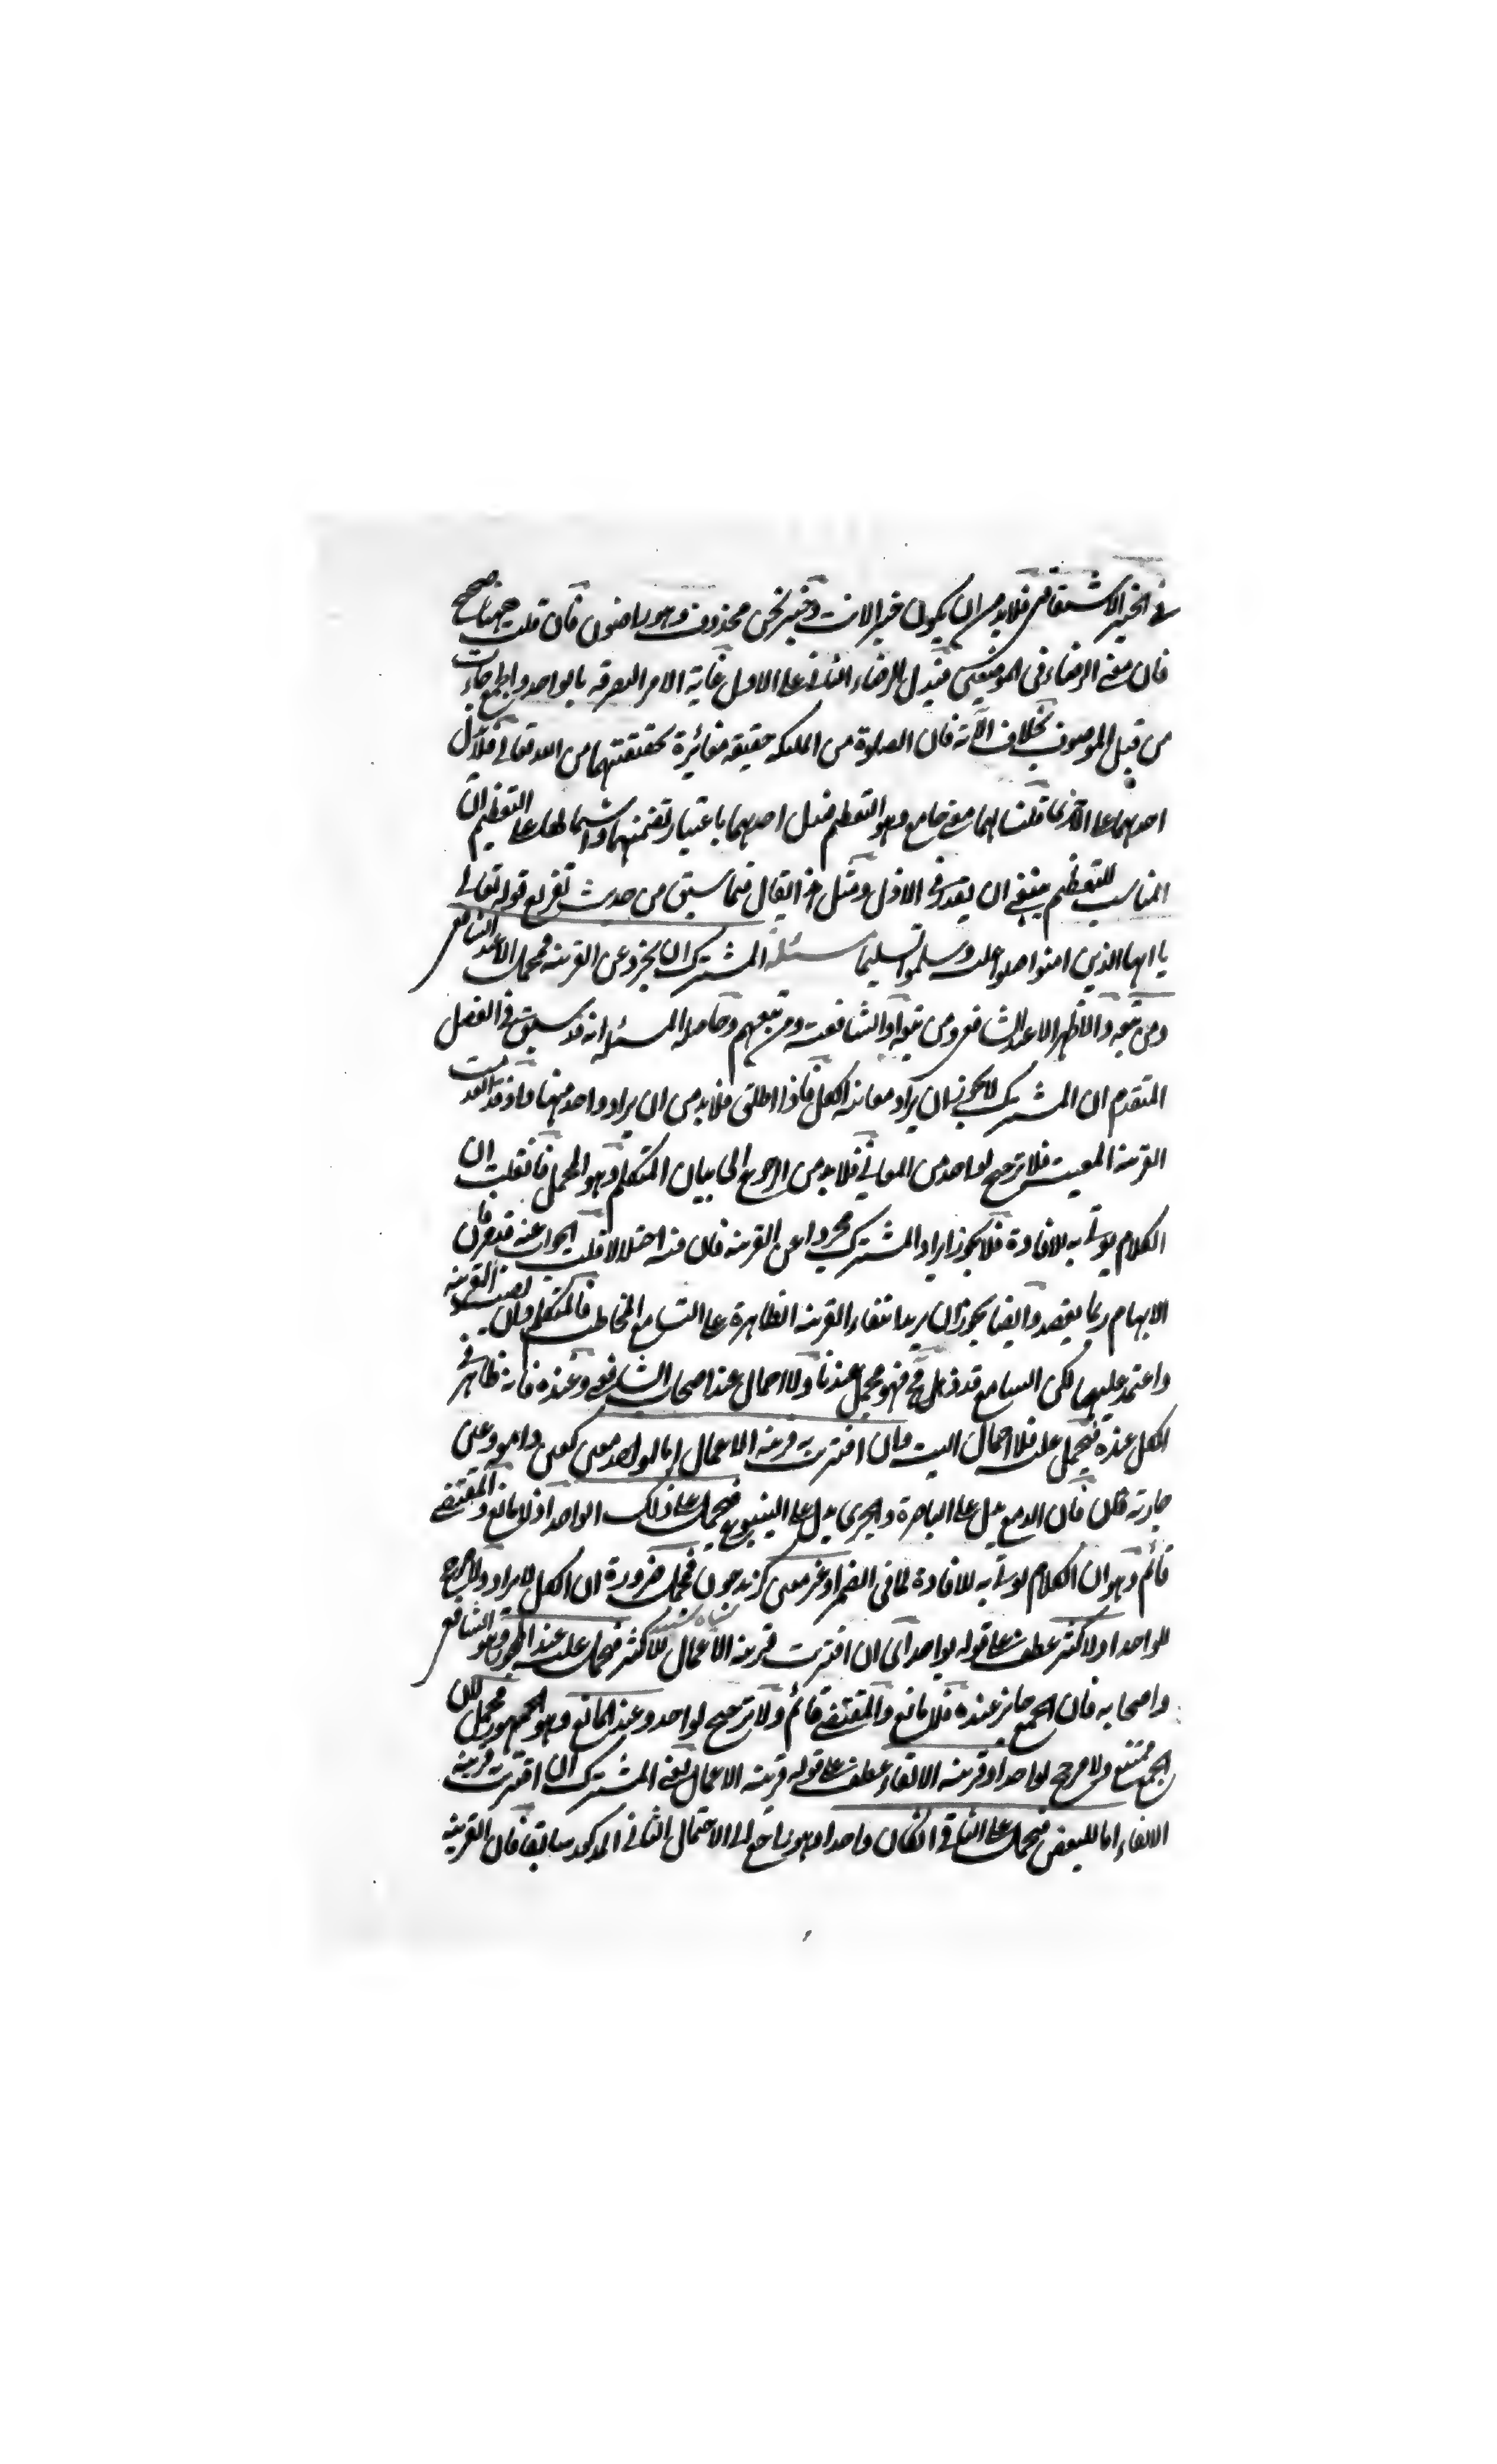 في الخبر الاشتقاقي فلا بد من ان يكون خبر الانت وخبر نحن محذوف وهو راضون فان قلت ههنا صحيح
فان معنى الرضاء في الموضعين فيدل بالرضاء الثاني على الاول غاية الامر التفرقه بالواحد والجمع جاءت
من قبل الموصوف بخلاف الآية فان الصلوة من الملئكه حقيقه مغائرة لحقيقتها من الله تعالى فلا تدل
احدهما على الاخرى قلت لهما معنى جامع وهو التعظيم فيدل احدهما باعتبار تضمنهما واشتمالهما على التعظيم ان
المناسب للتعظيم ينبغي ان يقدر في الاول ومثل هذا يقال فيما سبق من حديث تفريع قوله تعالى
يا ايها الذين امنوا صلوا عليه وسلموا تسليما مسئلة المشترك ان تجرد عن القرينه فمجمل الا عند الشافعي
ومن تبعه والاظهر الا عند الشافعي ومن تبعه او الشافعيه ومن تبعهم وحاصل المسئله انه قد سبق في الفصل
المتقدم ان المشترك لا يجوز ان يراد معانيه الكل فاذا اطلق فلا بد من ان يراد واحد منها واذ قد انعدمت
القرينه المعينه فلا ترجيح لواحد من المعاني فلا بد من الرجوع الى بيان المتكلم وهو المجمل فان قلت ان
الكلام يوتى به للافادة فلا يجوز ايراد المشترك مجردا عن القرينه فان فيه اخلالا قلت الجواب عنه قد مر فان
الابهام ربما يقصد وايضا يجوز ان يريد انتفاء القرينه الظاهرة على السامع المخاطب فالمتكلم وان نصب القرينه
واعتمد عليها لكن السامع قد ذهل فح فهو مجمل عندنا ولا اجمال عند اصحاب الشافعي وعنده فانه ظاهر في
الكل عنده فيحمل عليه فلا اجمال اليه وان اقترنت به قرينه الاعمال اما لواحد معين كعين دامع وعين
جارية قلن فان الدمع يدل على الباصرة والجرى يدل على الينبوع فيحمل على ذلك الواحد اذ لا مانع والمقتضى
قائم وهو ان الكلام يوتى به للافادة لما في الضمير او غير معين كزيد جون فمجمل ضرورة ان الكل لا يراد ولا مرجح
لواحد او لاكثر عطف على قوله لواحد اى ان اقترنت قرينه الاعمال للاكثر فيحمل عليه عند المجوز وهو الشافعي
واصحابه فان الجمع جائز عنده فلا مانع والمقتضى قائم ولا ترجيح لواحد وعند المانع وهو الجمهور مجمل لان
الجمع ممتنع ولا مرجح لواحد او قرينه الالغاء عطف على قوله قرينه الاعمال يعنى المشترك ان اقترنت قرينه
الالغاء اما للبعض فيحمل على الباقي ان كان واحدا وهو راجع الى الاحتمال الثاني المذكور سابقا فان القرينه